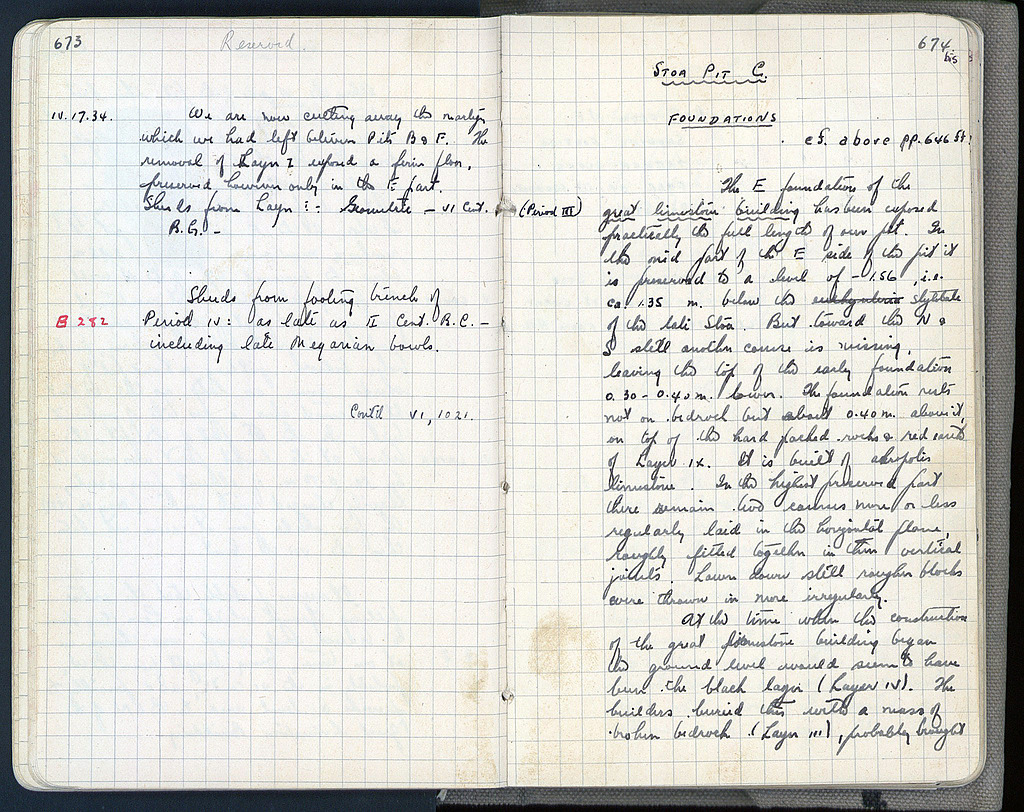 673
Reserved.
IV.17.34. We are now cutting away the
which we had left between Pits B & F. The
removal of Layer I exposed a firm floor,
preserved however only in the E part.
Sherds from Layer I: Geometric – VI Cent.
B.C. –
Sherds from footing trench of
B 282 Period IV: as late as II Cent. B.C. –
including late Megarian bowls.
Cont'd VI, 1021.
674 bis
STOA PIT C.
FOUNDATIONS
cf. above pp. 646 ff.
The E foundation of the
(Period III) great limestone building has been exposed
practically the full length of our pit. In
the mid part of the E side of the pit it
is preserved to a level of – 1.56, i.e.
ca. 1.35 m. below the euthynteria stylobate
of the late Stoa. But toward the N &
S still another course is missing,
leaving the top of the early foundation
0.30 – 0.40 m. lower. The foundation rests
not on bedrock but about 0.40 m. above it,
on top of the hard packed rocks & red earth
of Layer IX. It is built of acropolis
limestone. In the highest preserved part
there remain two courses more or less
regularly laid in the horizontal plane,
roughly fitted together in their vertical
joints. Lower down still rougher blocks
were thrown in more irregularly.
At the time when the construction
of the great limestone building began
the ground level would seem to have
been the black layer (Layer IV). The
builders buried this with a mass of
broken bedrock (Layer III), probably brought